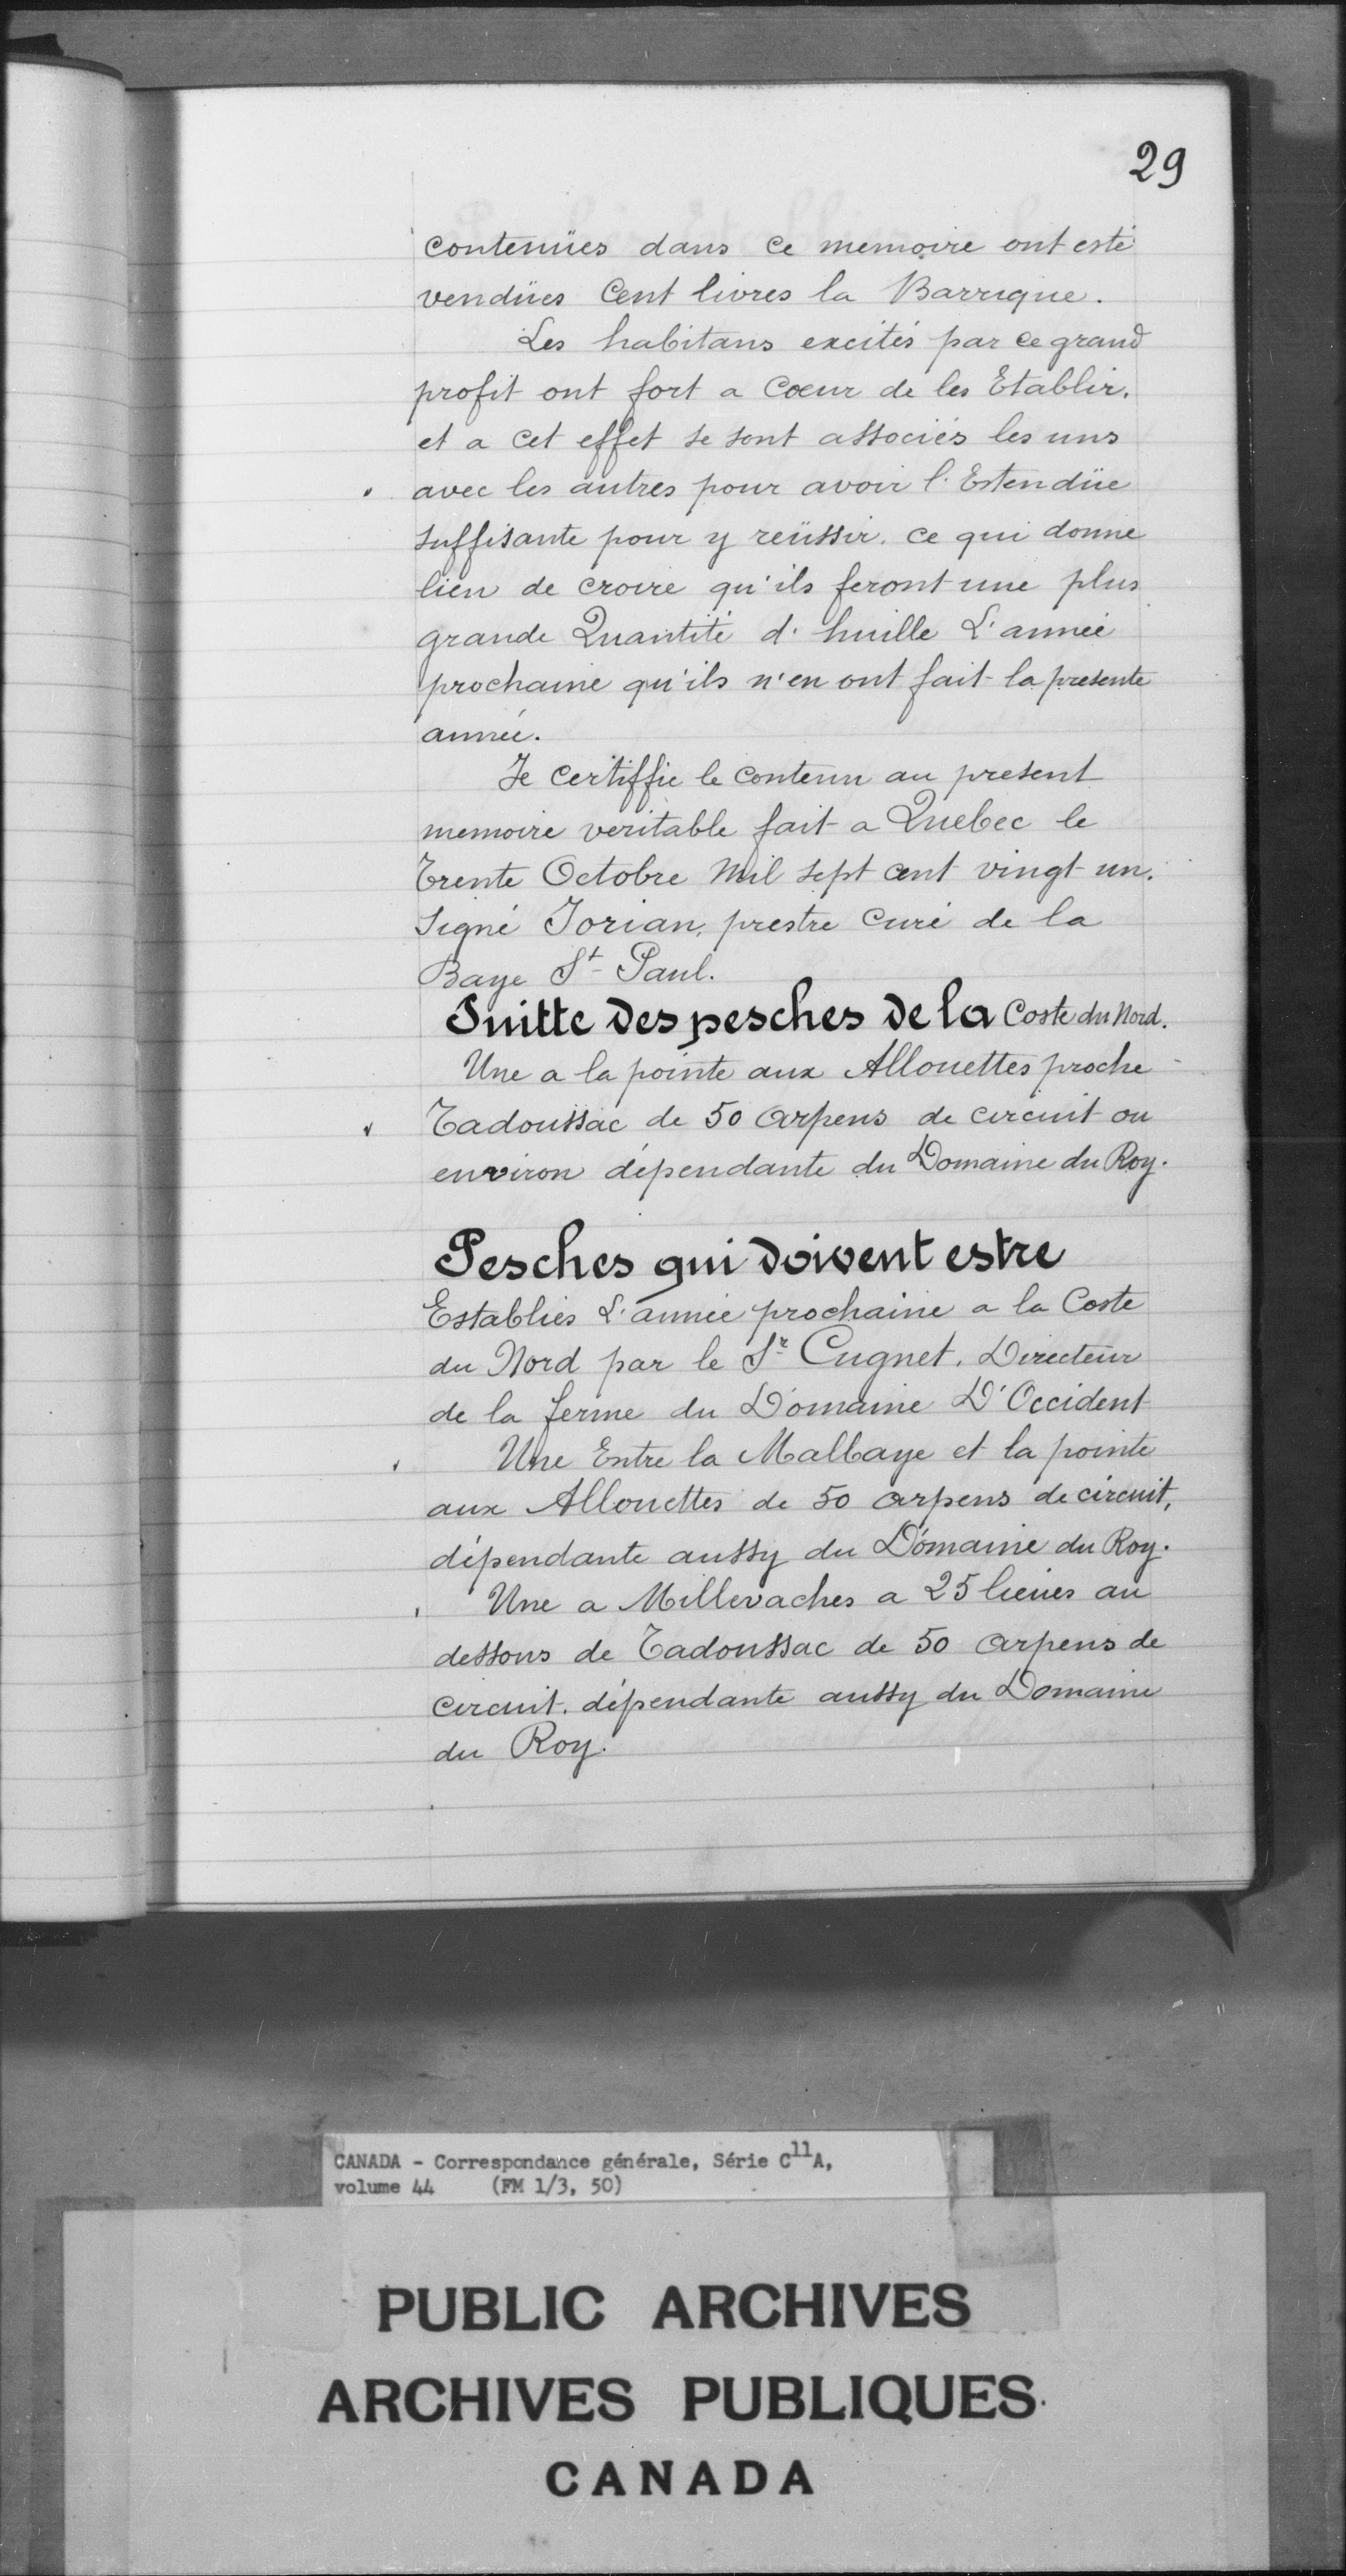 29
contenües dans ce memoire ont esté
vendües Cent livres la Barrique.
Les habitans excités par ce grand
profit ont fort a Coeur de les Etablir.
et a cet effet se sont associés les uns
avec les autres pour avoir l'Estendüe
suffisante pour y reüssir. ce qui donne
lieu de croire qu'ils feront une plus
grande Quantité d'huille L'année
prochaine qu'ils n'en ont fait la presente
année.
Je Certiffie le Contenu au present
memoire veritable fait a Quebec le
Trente Octobre Mil sept cent vingt un.
Signé Jorian, prestre Curé de la
Baye St Paul.
Suitte des pesches de la Coste du Nord.
Une a la pointe aux Allouettes proche
Tadoussac de 50 arpens de circuit ou
environ dépendante du Domaine du Roy.
Pesches qui doivent estre
Establies L'année prochaine a la Coste
du Nord par le Sr Cugnet, Directeur
de la ferme du Domaine D'Occident
Une Entre la Malbaye et la pointe
aux Allouettes de 50 arpens de circuit,
dépendante aussy du Domaine du Roy.
Une a Millevaches a 25 lieues au
dessous de Tadoussac de 50 arpens de
circuit. dépendante aussy du Domaine
du Roy.
CANADA - Correspondance générale, Série C11A,
volume 44 (FM 1/3, 50)
PUBLIC ARCHIVES
ARCHIVES PUBLIQUES
CANADA